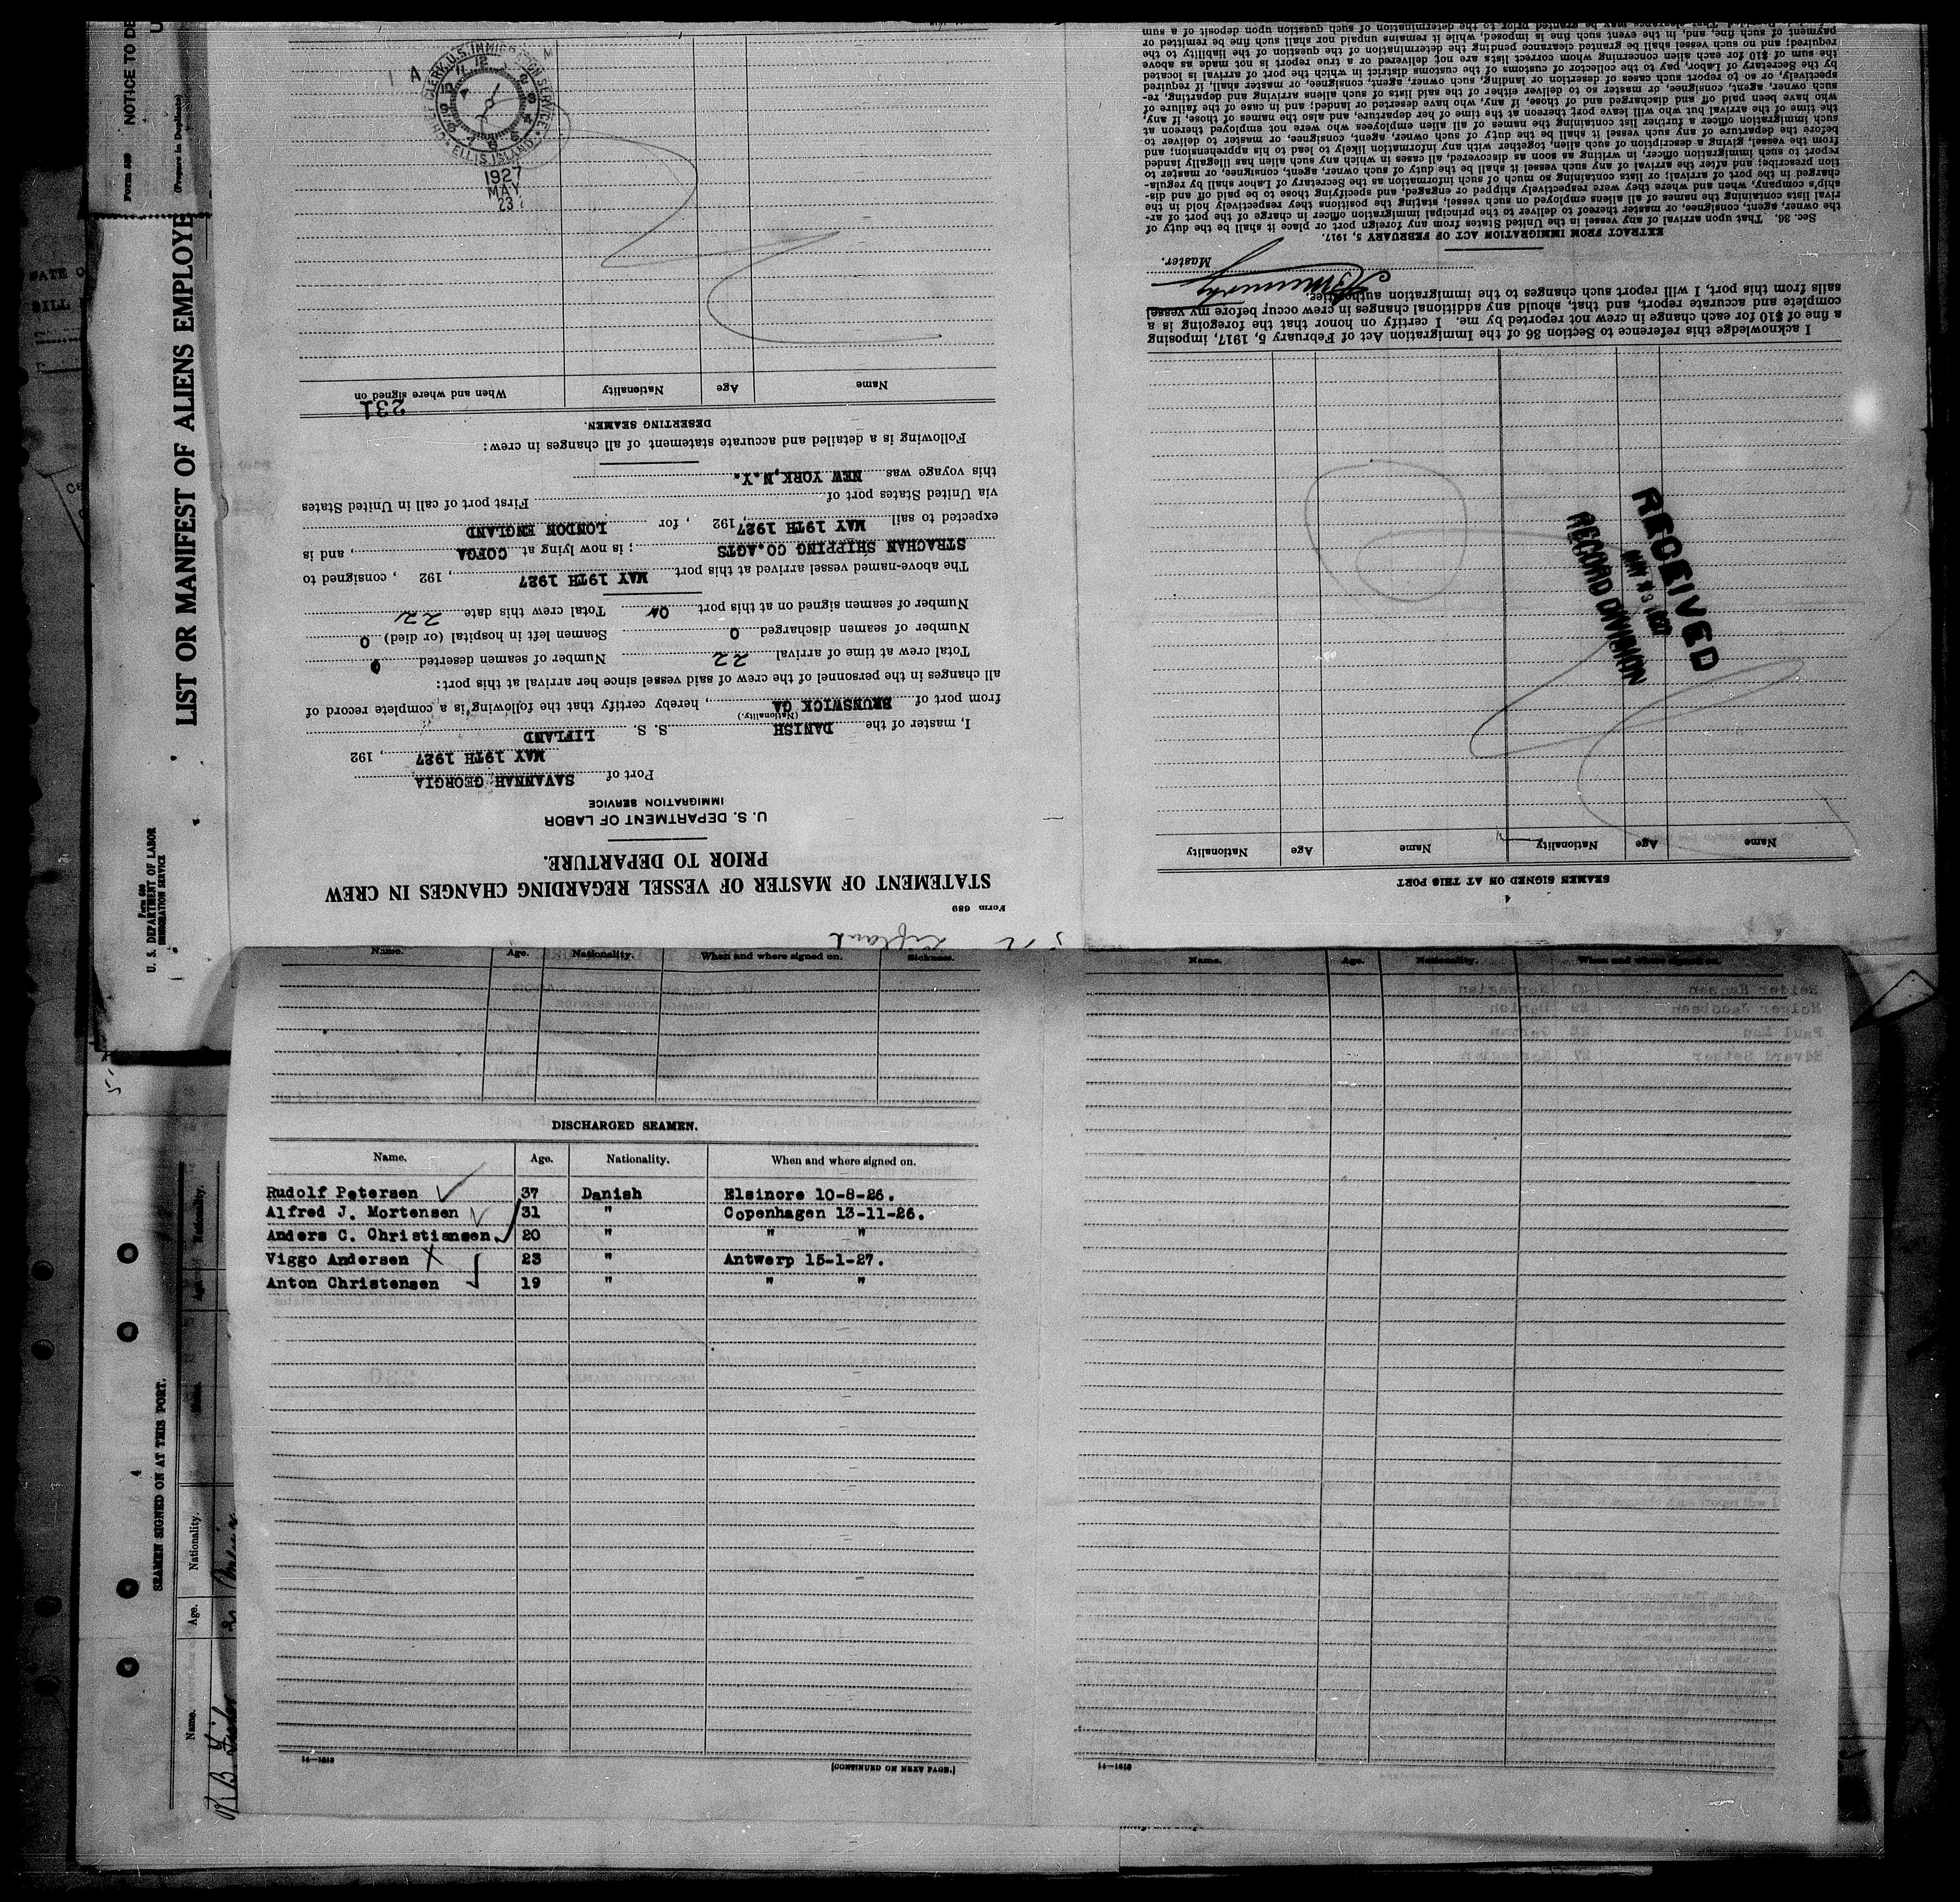 Form 689
STATEMENT OF MASTER OF VESSEL REGARDING CHANGES IN CREW
PRIOR TO DEPARTURE.
U. S. DEPARTMENT OF LABOR
IMMIGRATION SERVICE
Port of SAVANNAH GEORGIA
MAY 19TH 1927, 192
I, master of the DANISH S. S. LIFLAND
(Nationality.)
from port of BRUNSWICK GA, hereby certify that the following is a complete record of
all changes in the personnel of the crew of said vessel since her arrival at this port:
Total crew at time of arrival 22 Number of seamen deserted 0
Number of seamen discharged 0 Seamen left in hospital (or died) 0
Number of seamen signed on at this port Total crew this date 22
The above-named vessel arrived at this port MAY 19TH 1927, 192 , consigned to
STRACHAN SHIPPING CO.AGTS ; is now lying at COFGA, and is
expected to sail MAY 19TH 1927, 192 , for LONDON ENGLAND
via United States port of First port of call in United States
this voyage was NEW YORK,N.Y.
Following is a detailed and accurate statement of all changes in crew:
DESERTING SEAMEN.
231
Name Age Nationality When and where signed on
CHIEF CLERK, U.S. IMMIGRATION SERVICE
ELLIS ISLAND
1927
MAY
23
4
SEAMEN SIGNED ON AT THIS PORT
Name Age Nationality Name Age Nationality
RECEIVED
RECORD DIVISION
I acknowledge this reference to Section 36 of the Immigration Act of February 5, 1917, imposing
a fine of $10 for each change in crew not reported by me. I certify on honor that the foregoing is a
complete and accurate report, and that, should any additional changes in crew occur before my vessel
sails from this port, I will report such changes to the immigration authorities.
Master.
EXTRACT FROM IMMIGRATION ACT OF FEBRUARY 5, 1917.
Sec. 36. That upon arrival of any vessel in the United States from any foreign port or place it shall be the duty of
the owner, agent, consignee, or master thereof to deliver to the principal immigration officer in charge of the port of ar-
rival lists containing the names of all aliens employed on such vessel, stating the positions they respectively hold in the
ship's company, when and where they were respectively shipped or engaged, and specifying those to be paid off and dis-
charged in the port of arrival; or lists containing so much of such information as the Secretary of Labor shall by regula-
tion prescribe; and after the arrival of any such vessel it shall be the duty of such owner, agent, consignee, or master to
report to such immigration officer, in writing as soon as discovered, all cases in which any such alien has illegally landed
from the vessel, giving a description of such alien, together with any information likely to lead to his apprehension; and
before the departure of any such vessel it shall be the duty of such owner, agent, consignee, or master to deliver to
such immigration officer a further list containing the names of all alien employees who were not employed thereon at
the time of the arrival but who will leave port thereon at the time of her departure, and also the names of those, if any,
who have been paid off and discharged and of those, if any, who have deserted or landed; and in case of the failure of
such owner, agent, consignee, or master so to deliver either of the said lists of such aliens arriving and departing, re-
spectively, or so to report such cases of desertion or landing, such owner, agent, consignee, or master shall, if required
by the Secretary of Labor, pay to the collector of customs of the customs district in which the port of arrival is located
the sum of $10 for each alien concerning whom correct lists are not delivered or a true report is not made as above
required; and no such vessel shall be granted clearance pending the determination of the question of the liability to the
payment of such fine, and, in the event such fine is imposed, while it remains unpaid nor shall such fine be remitted or
Name. Age. Nationality. When and where signed on. Sickness.
Name. Age. Nationality. When and where signed on.
DISCHARGED SEAMEN.
Name. Age. Nationality. When and where signed on.
Rudolf Petersen 37 Danish Elsinore 10-8-26.
Alfred J. Mortensen 31 " Copenhagen 13-11-26.
Anders C. Christiansen. 20 " " "
Viggo Andersen 23 " Antwerp 15-1-27.
Anton Christensen 19 " " "
14—1613
[CONTINUED ON NEXT PAGE.]
14—1613
Form 680 NOTICE TO DE
(Prepare in Duplicate)
LIST OR MANIFEST OF ALIENS EMPLOYE
U. S. DEPARTMENT OF LABOR
IMMIGRATION SERVICE
4
SEAMEN SIGNED ON AT THIS PORT.
Name. Age. Nationality. Name. Age. Nationality.